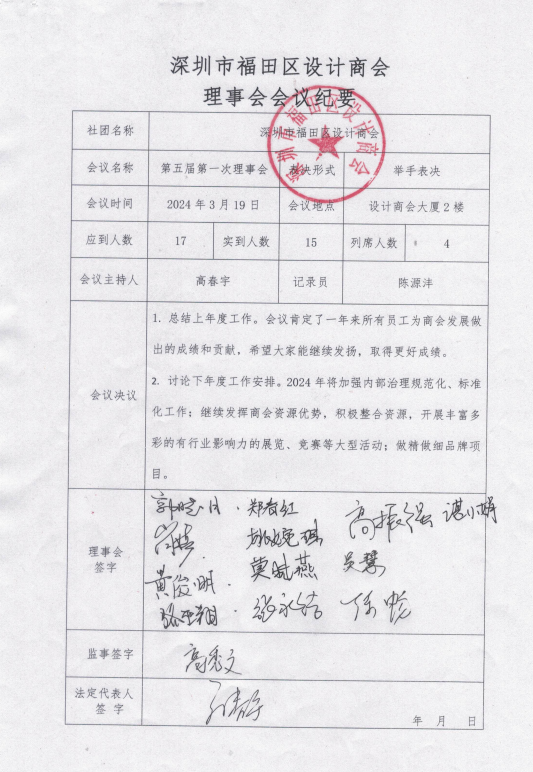 深圳市福田区设计商会
理事会会议纪要
社团名称 深圳市福田区设计商会
会议名称 第五届第一次理事会 表决形式 举手表决
会议时间 2024年3月19日 会议地点 设计商会大厦2楼
应到人数 17 实到人数 15 列席人数 4
会议主持人 高春宇 记录员 陈源沣
会议决议
1. 总结上年度工作。会议肯定了一年来所有员工为商会发展做
出的成绩和贡献，希望大家能继续发扬，取得更好成绩。
2. 讨论下年度工作安排。2024年将加强内部治理规范化、标准
化工作；继续发挥商会资源优势，积极整合资源，开展丰富多
彩的有行业影响力的展览、竞赛等大型活动；做精做细品牌项
目。
理事会
签字
郑春红 高振强
莫斌燕 吴慧
黄俊明
张永锋 任鹏
监事签字 高秀文
法定代表人
签 字
年 月 日
深圳市福田区设计商会